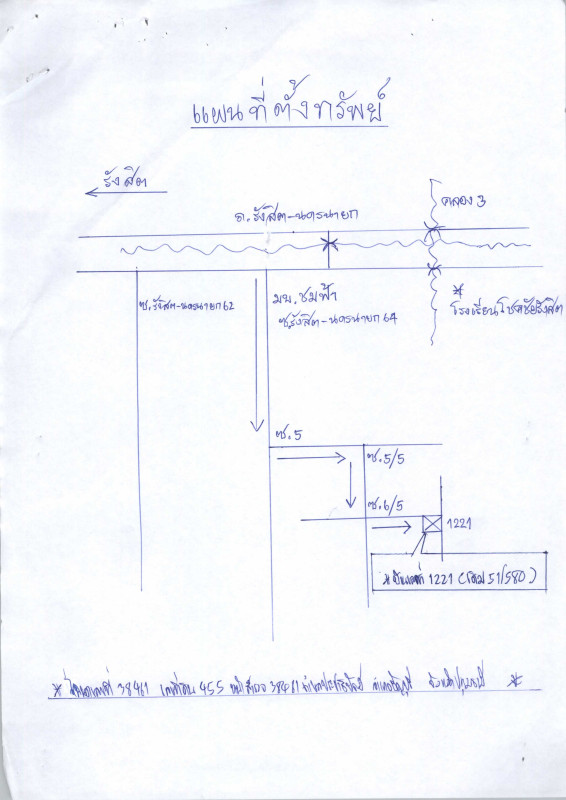 แผนที่ตั้งทรัพย์
รังสิต
ถ.รังสิต-นครนายก
คลอง 3
ซ.รังสิต-นครนายก 62
มบ.ชมฟ้า
ซ.รังสิต-นครนายก 64
*
โรงเรียนโชคชัยรังสิต
ซ.5
ซ.5/5
ซ.6/5
1221
* บ้านเลขที่ 1221 (เดิม 51/580)
* โฉนดเลขที่ 38461 เลขที่ดิน 455 หน้าสำรวจ 38461 ตำบลประชาธิปัตย์ อำเภอธัญบุรี จังหวัดปทุมธานี *